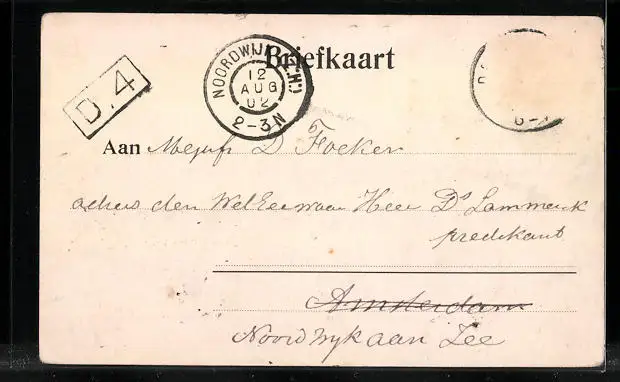 Briefkaart
D.4
NOORDWIJK
12
AUG
02
2-3N
Aan Mejufr D. Focker
adres den WelEerwaar Heer Ds Lammerink
predikant
Amsterdam
Noordwijk aan Zee